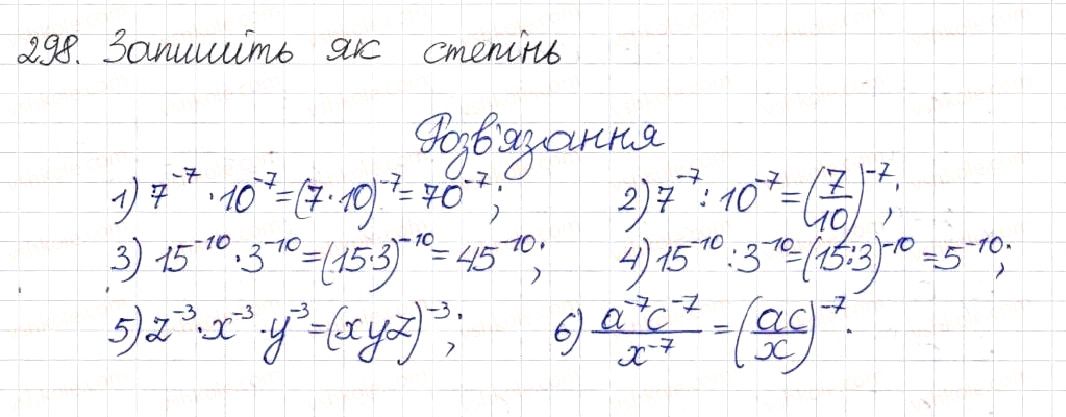 298. Запишіть як степінь
Розв'язання
1) 7⁻⁷ · 10⁻⁷ = (7 · 10)⁻⁷ = 70⁻⁷; 2) 7⁻⁷ : 10⁻⁷ = (7/10)⁻⁷;
3) 15⁻¹⁰ · 3⁻¹⁰ = (15·3)⁻¹⁰ = 45⁻¹⁰; 4) 15⁻¹⁰ : 3⁻¹⁰ = (15:3)⁻¹⁰ = 5⁻¹⁰;
5) z⁻³ · x⁻³ · y⁻³ = (xyz)⁻³; 6) a⁻⁷c⁻⁷/x⁻⁷ = (ac/x)⁻⁷.